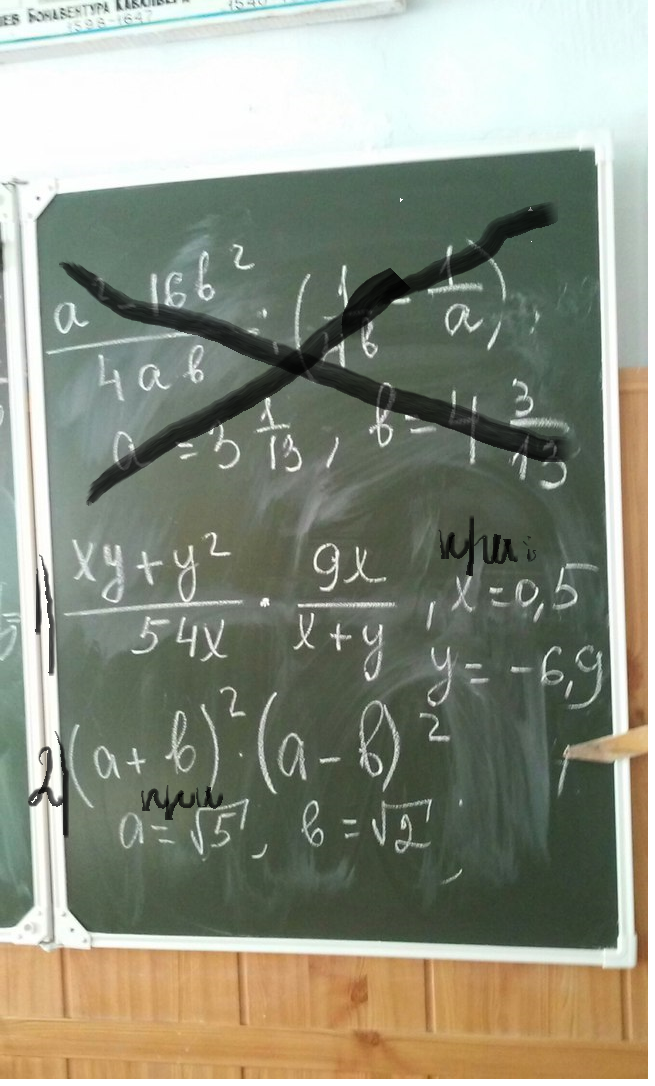 БОНАВЕНТУРА КАВАЛЬЕРИ
1598-1647
a² - 16b² / 4ab : (1/4b - 1/a) ;
a = 3 1/13 , b = 4 3/13
1) xy+y² / 54x · 9x / x+y , при: x=0,5
y = -6,9
2) (a+b)² · (a-b)²
при a=√5 , b=√2 ;